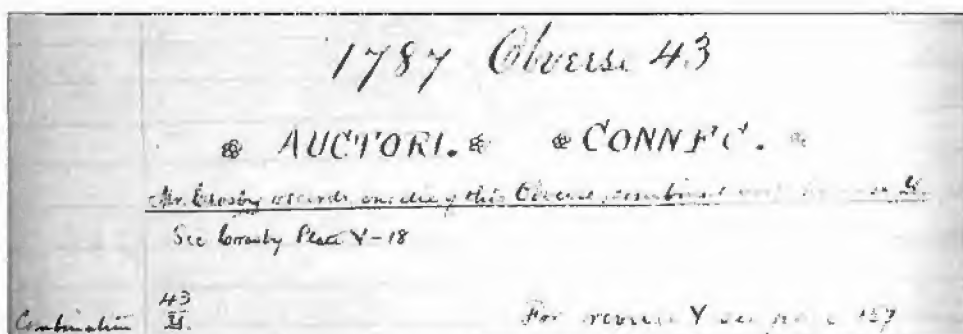 1787 Obverse 43
❀ AUCTORI. ❀ ❀ CONNEC. ❀
Mr. Crosby records one die of this Obverse, combined with reverse
See Crosby Plate V-18
43
Combination
For reverse Y see page 157